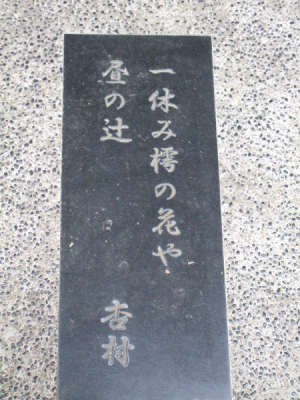 一休み樗の花や
昼の辻
杏村